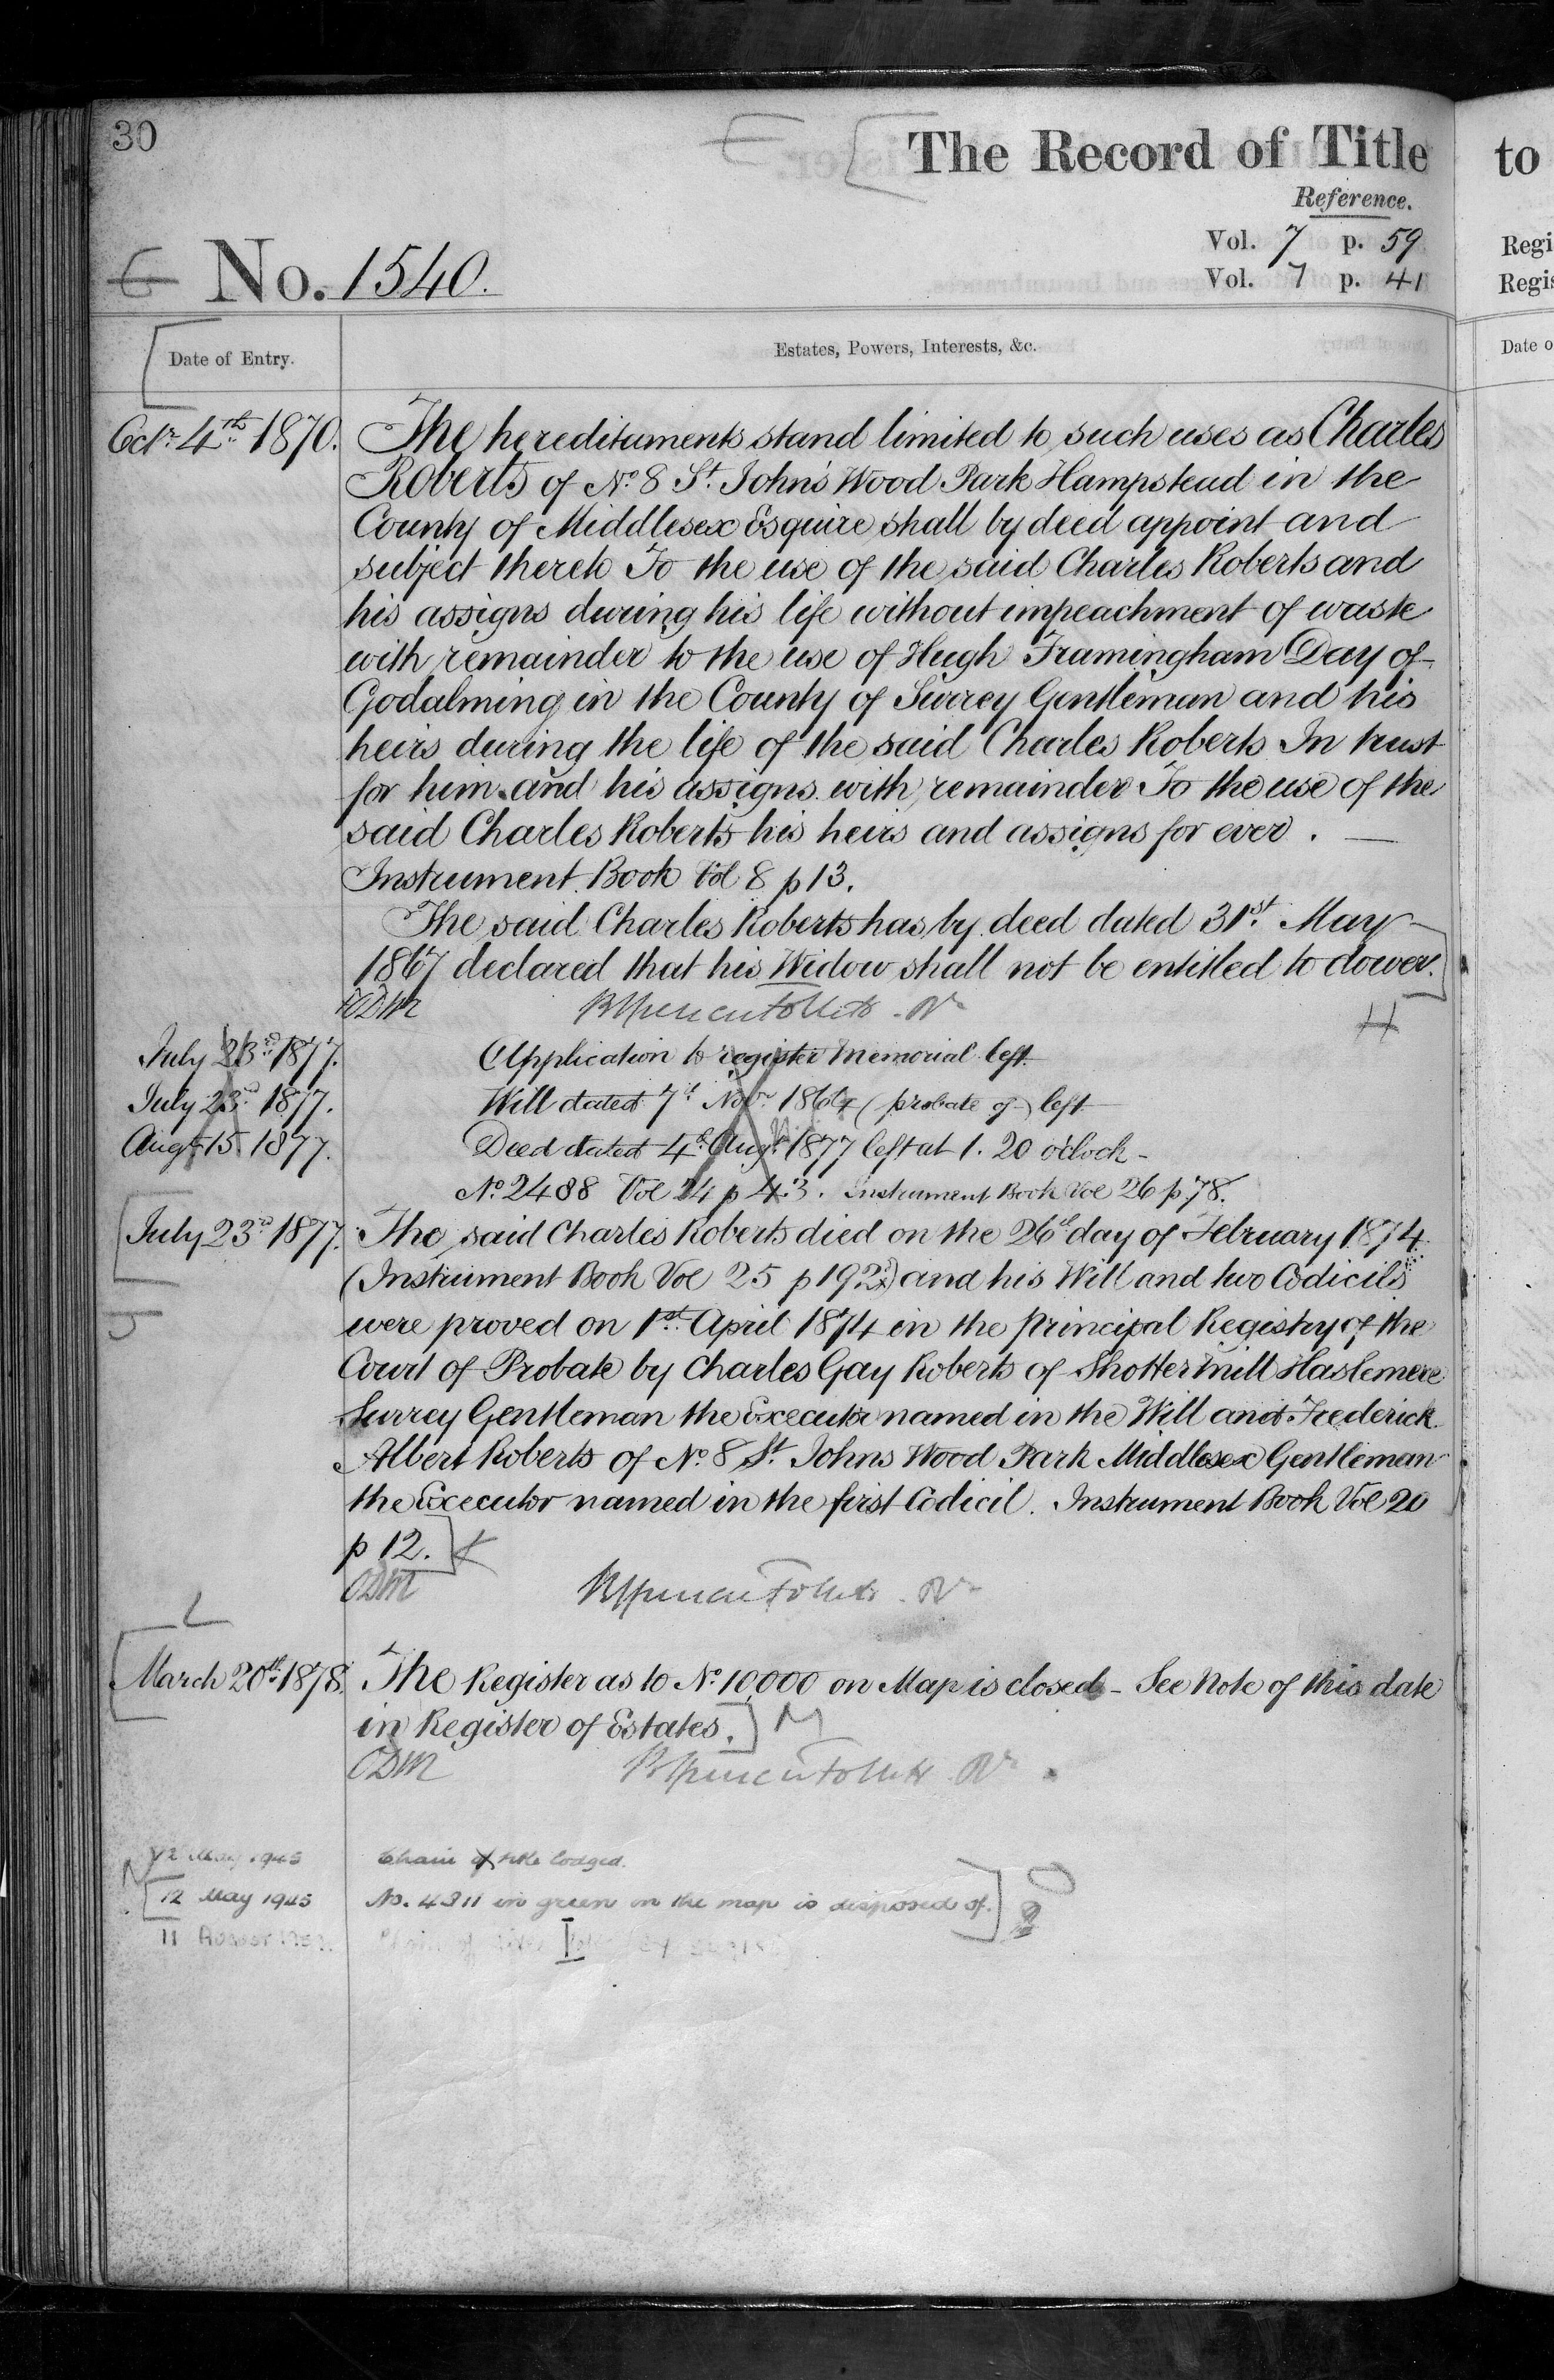 30
The Record of Title
to
Reference.
Vol. 7 p. 59
Vol. 7 p. 41
Regi
Regis
No. 1540.
Date of Entry.
Estates, Powers, Interests, &c.
Date o
Octr. 4th 1870.
The hereditaments stand limited to such uses as Charles
Roberts of No. 8 St. John's Wood Park Hampstead in the
County of Middlesex Esquire shall by deed appoint and
subject thereto To the use of the said Charles Roberts and
his assigns during his life without impeachment of waste
with remainder to the use of Hugh Framingham Day of
Godalming in the County of Surrey Gentleman and his
heirs during the life of the said Charles Roberts In trust
for him and his assigns with remainder To the use of the
said Charles Roberts his heirs and assigns for ever. —
Instrument Book Vol 8 p 13.
The said Charles Roberts has by deed dated 31st. May
1867 declared that his Widow shall not be entitled to dower.
H
July 23rd 1877. Application to register Memorial left
July 23rd 1877. Will dated 7th Novr. 1864 (probate of) left
Augt 15 1877. Deed dated 4th Augt. 1877 left at 1.20 o'clock -
No. 2488 Vol 24 p 43. Instrument Book Vol 26 p 78.
July 23rd 1877. The said Charles Roberts died on the 26th day of February 1874
(Instrument Book Vol 25 p 192) and his Will and two Codicils
were proved on 1st. April 1874 in the Principal Registry of the
Court of Probate by Charles Gay Roberts of Shottermill Haslemere
Surrey Gentleman the Executor named in the Will and Frederick
Albert Roberts of No. 8 St. Johns Wood Park Middlesex Gentleman
the Executor named in the first Codicil. Instrument Book Vol 20
p 12. K
L
March 20th 1878. The Register as to No. 10,000 on Map is closed - See Note of this date
in Register of Estates. M
12 May 1945 Chain of title lodged.
N
12 May 1945 No. 4311 in green on the map is disposed of. O
11 August